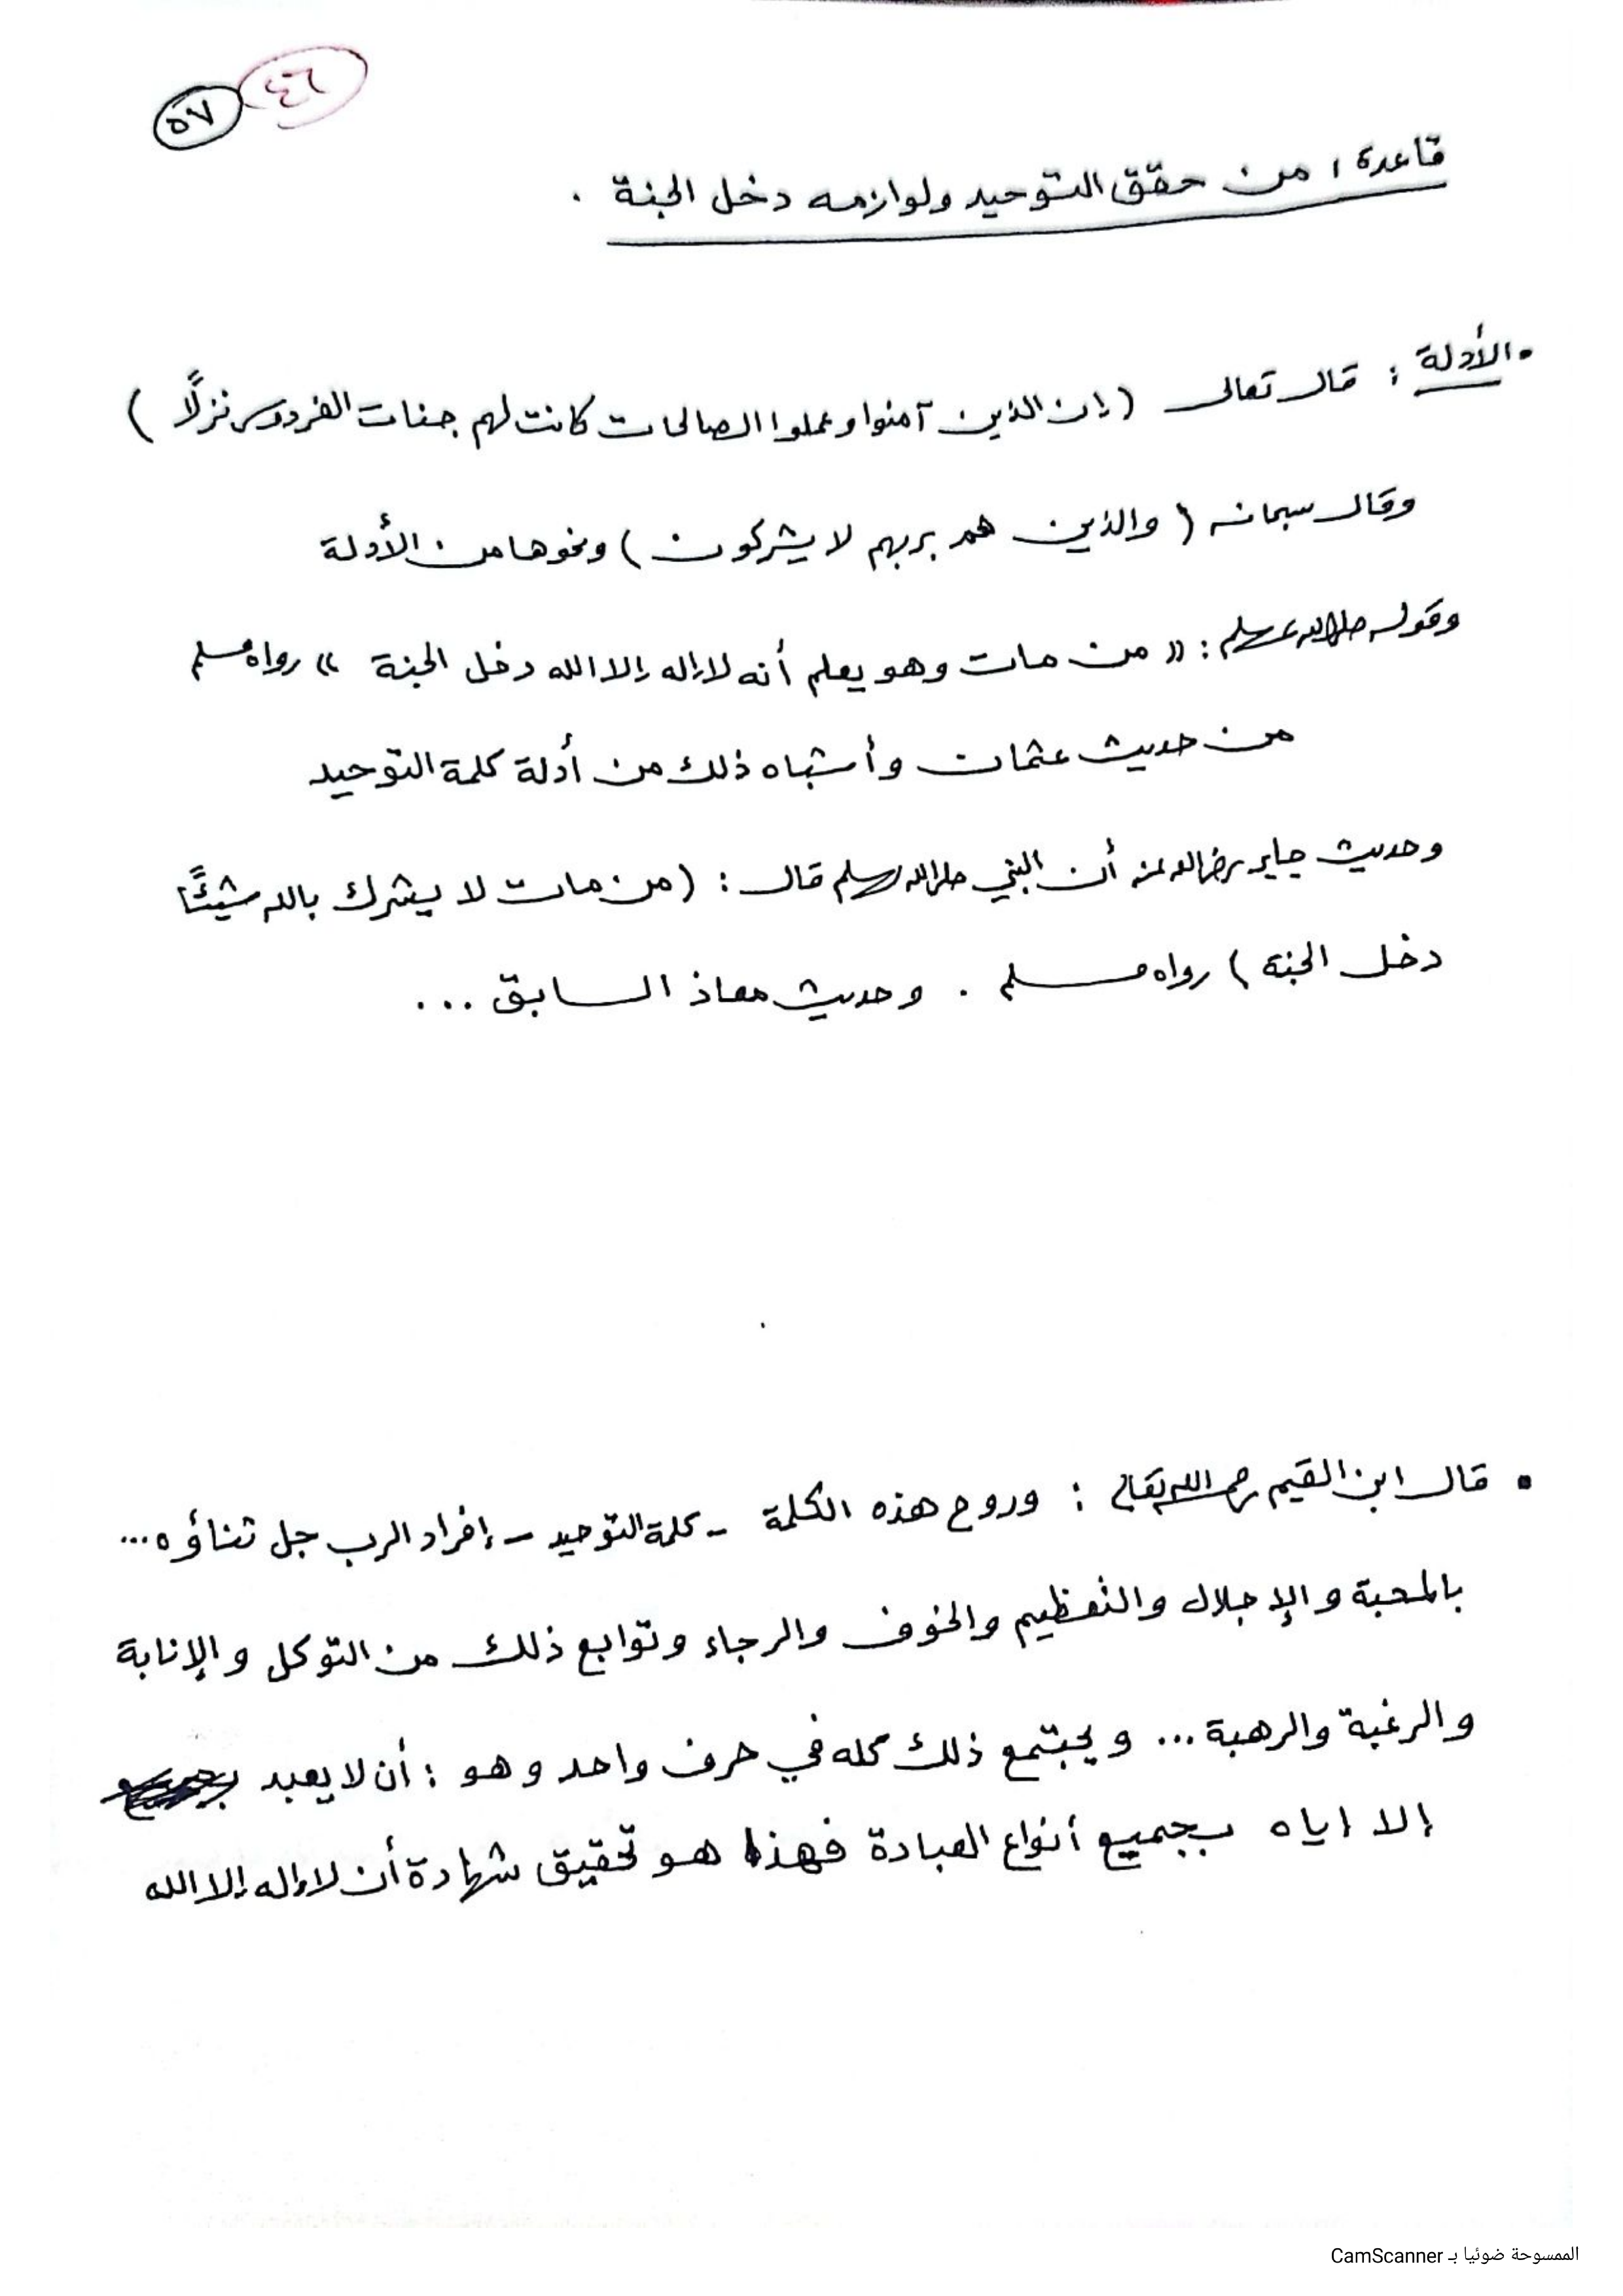 ٤٦
٥٧
قاعدة : من حقق التوحيد ولوازمه دخل الجنة .
• الأدلة : قال تعالى ( إن الذين آمنوا وعملوا الصالحات كانت لهم جنات الفردوس نزلًا )
وقال سبحانه ( والذين هم بربهم لا يشركون ) ونحوها من الأدلة
وقوله صلى الله عليه وسلم : « من مات وهو يعلم أنه لا إله إلا الله دخل الجنة » رواه مسلم
من حديث عثمان وأشباه ذلك من أدلة كلمة التوحيد
وحديث جابر رضي الله عنه أن النبي صلى الله عليه وسلم قال : ( من مات لا يشرك بالله شيئًا
دخل الجنة ) رواه مسلم . وحديث معاذ السابق ...
• قال ابن القيم رحمه الله تعالى : وروح هذه الكلمة - كلمة التوحيد - إفراد الرب جل ثناؤه ...
بالمحبة والإجلال والتعظيم والخوف والرجاء وتوابع ذلك من التوكل والإنابة
والرغبة والرهبة ... ويجتمع ذلك كله في حرف واحد وهو : أن لا يعبد
إلا اياه بجميع أنواع العبادة فهذا هو تحقيق شهادة أن لا إله إلا الله
الممسوحة ضوئيا بـ CamScanner